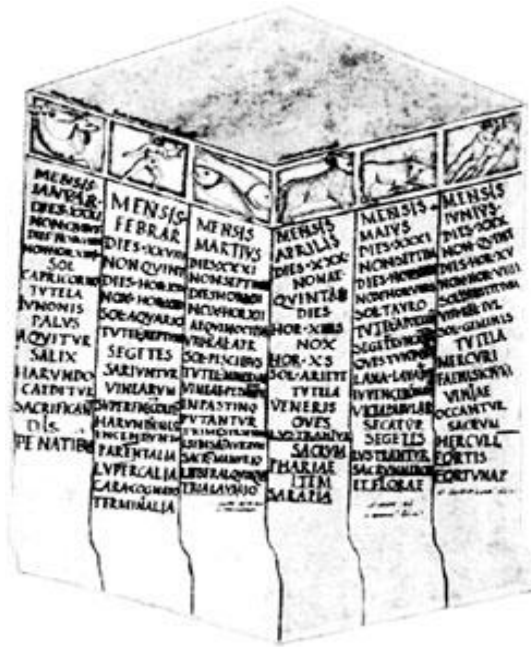 MENSIS
IANVAR
DIES·XXXI
NON·QVINT
SOL
CAPRICORNO
TVTELA
IVNONIS
PALVS
AQVITVR
SALIX
HARVNDO
CAEDITVR
SACRIFICANT
DIS
PENATIBVS
MENSIS
FEBRAR
DIES·XXVIII
NON·QVINT
DIES·HOR·X
NOX·HOR·XIII
SOL·AQVARIO
TVTEL·NEPTVNI
SEGETES
SARIVNTVR
VINEARVM
SVPERFIC
HARVNDINES
INCENDVNT
PARENTALIA
LVPERCALIA
CARA·COGNATIO
TERMINALIA
MENSIS
MARTIVS
DIES·XXXI
NON·SEPTIM
DIES·HOR·XII
NOX·HOR·XII
AEQVINOCTIVM
SOL·PISCIBVS
TVTEL·MINERVAE
IN·PASTINO
PVTANTVR
TRIMESTR
LIBERAL·QVINQ
TRIA·LAVATIO
MENSIS
APRILIS
DIES·XXX
NONAE
QVINTAN
DIES
HOR·XIIIS
NOX
HOR·XS
SOL·ARIETE
TVTELA
VENERIS
OVES
LVSTRANTVR
SACRVM
PHARIAE
ITEM
SARAPIA
MENSIS
MAIVS
DIES·XXXI
NON·SEPTIM
SOL·TAVRO
TVTEL·APOLLIN
SEGET·RVNCANT
OVES·TVNDENT
LANA·LAVATVR
IVVENCI·DOMANT
VICIA·PABVLAR
SECATVR
SEGETES
LVSTRANTVR
SACRVM·MERCVR
ET·FLORAE
MENSIS
IVNIVS
DIES·XXX
NON·QVINT
DIES·HOR·XV
NOX·HOR·VIIII
SOL·GEMINIS
TVTELA
MERCVRI
FAENISICIVM
VINIAE
OCCANTVR
SACRVM
HERCVLI
FORTIS
FORTVNAE